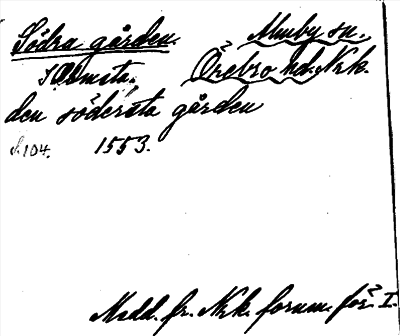 Södra gården. Almby sn.
I Ormsta. Örebro hd. Nrk.
den södersta gården
s. 104. 1553.
Medd. fr. Nrk. fornm. för. I.